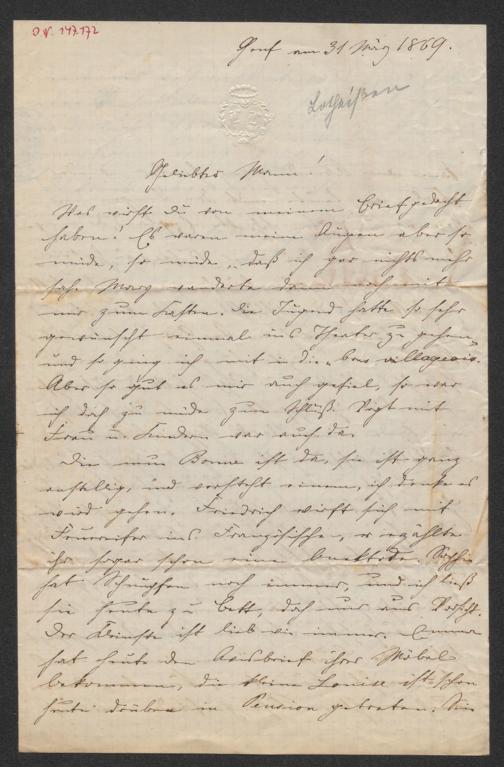 O.N. 147.172
Genf am 31 März 1869.
Lotheißen
Geliebter Mann!
Was wirst Du von meinem Brief gedacht
haben! Es waren meine Augen aber so
müde, so müde, daß ich gar nichts mehr
sah. Mary wanderte dann noch mit
mir zum Kasten. Die Jugend hatte so sehr
gewünscht einmal ins Theater zu gehen,
und so ging ich mit in die villageois.
Aber so gut es mir auch gefiel, so war
ich doch zu müde zum Schluß. Vogt mit
Frau u. Kindern war auch da.
Die neue Bonne ist da, sie ist ganz
anstellig, und versteht einem, ich denke es
wird gehen. Friedrich wirft sich mit
Feuereifer ins Französische, er erzählte
ihr sogar schon eine Anekdote. Sophie
hat Schnupfen noch immer, und ich ließ
sie heute zu Bett, doch nur aus Vorsicht.
Der Kleinste ist lieb wie immer. Emma
hat heute den Avisbrief ihrer Möbel
bekommen, die kleine Louise ist schon
heute drüben in Pension getreten. Sie